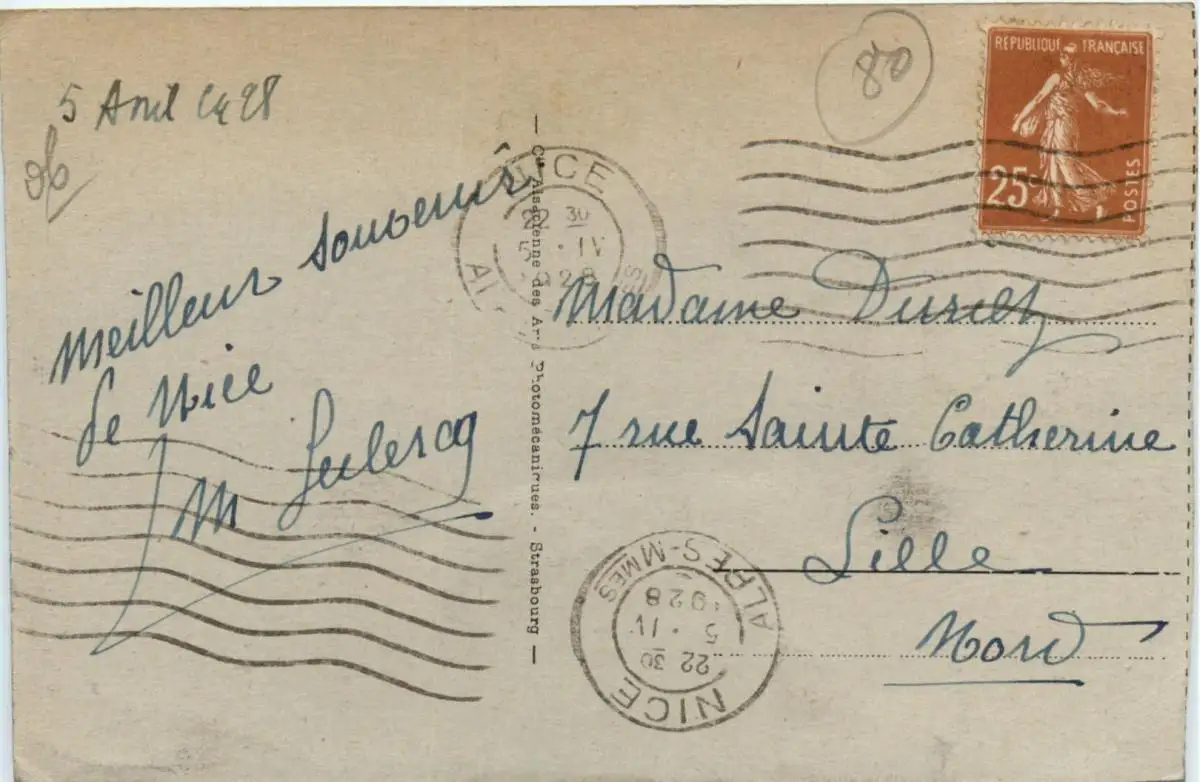 5 Avril 1928
06
80
RÉPUBLIQUE FRANÇAISE
25c
POSTES
NICE
22 30
5 · IV
1928
Meilleur souvenir
de Nice
M Leclercq
Cie Alsacienne des Arts Photomécaniques. - Strasbourg
Madame
7 rue Sainte Catherine
Lille
Nord
NICE
22 30
5 · IV
1928
ALPES-MMES